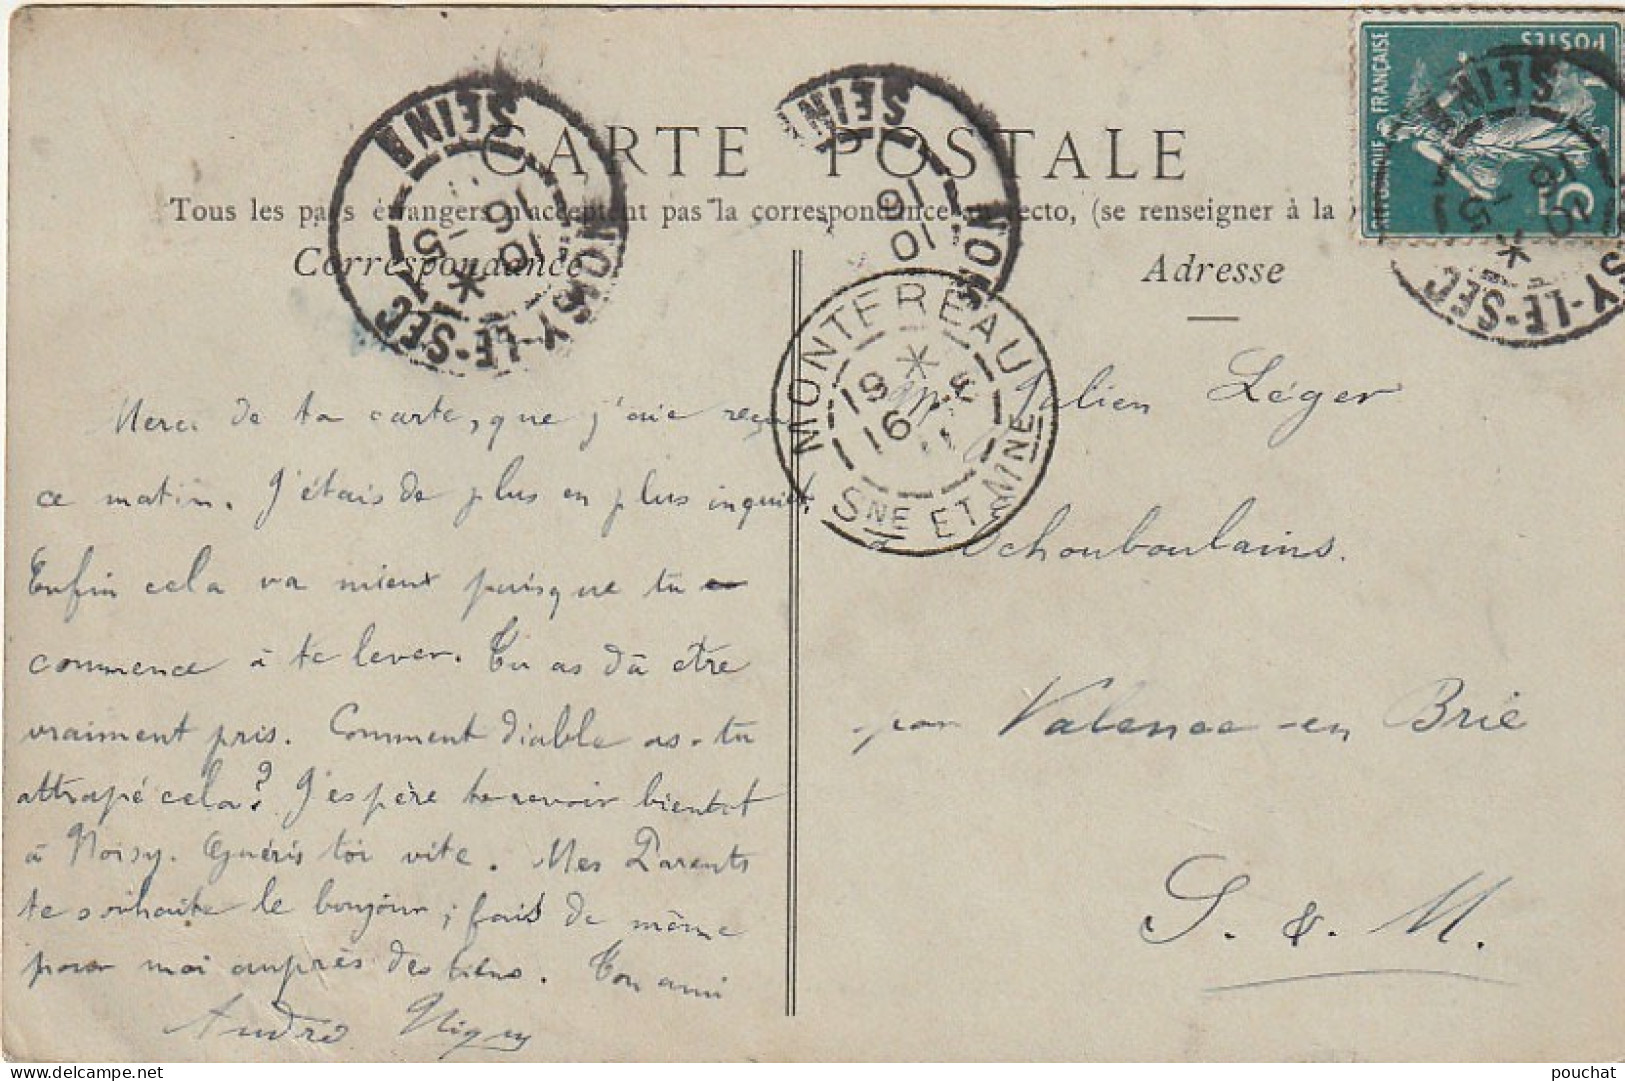 CARTE POSTALE
Tous les pays étrangers n'acceptent pas la correspondance au recto, (se renseigner à la
Correspondance
Adresse
POSTES
FRANÇAISE
5
NOISY-LE-SEC
SEINE
16
10
15
NOISY-LE-SEC
SEIN
16
10
Y-LE-SEC
SEINE
15
MONTEREAU
SNE ET MNE
19
16
Merci de ta carte, que j'aie reçu
ce matin. J'étais de plus en plus inquiet.
Enfin cela va mieux puisque tu
commence à te lever. Tu as dû être
vraiment pris. Comment diable as-tu
attrapé cela? J'espère te revoir bientôt
à Noisy. Guéris toi vite. Mes Parents
te souhaite le bonjour; fais de même
pour moi auprès des tiens. Ton ami
André
Julien Léger
à Echouboulains.
par Valence-en Brie
S. & M.
pouchat